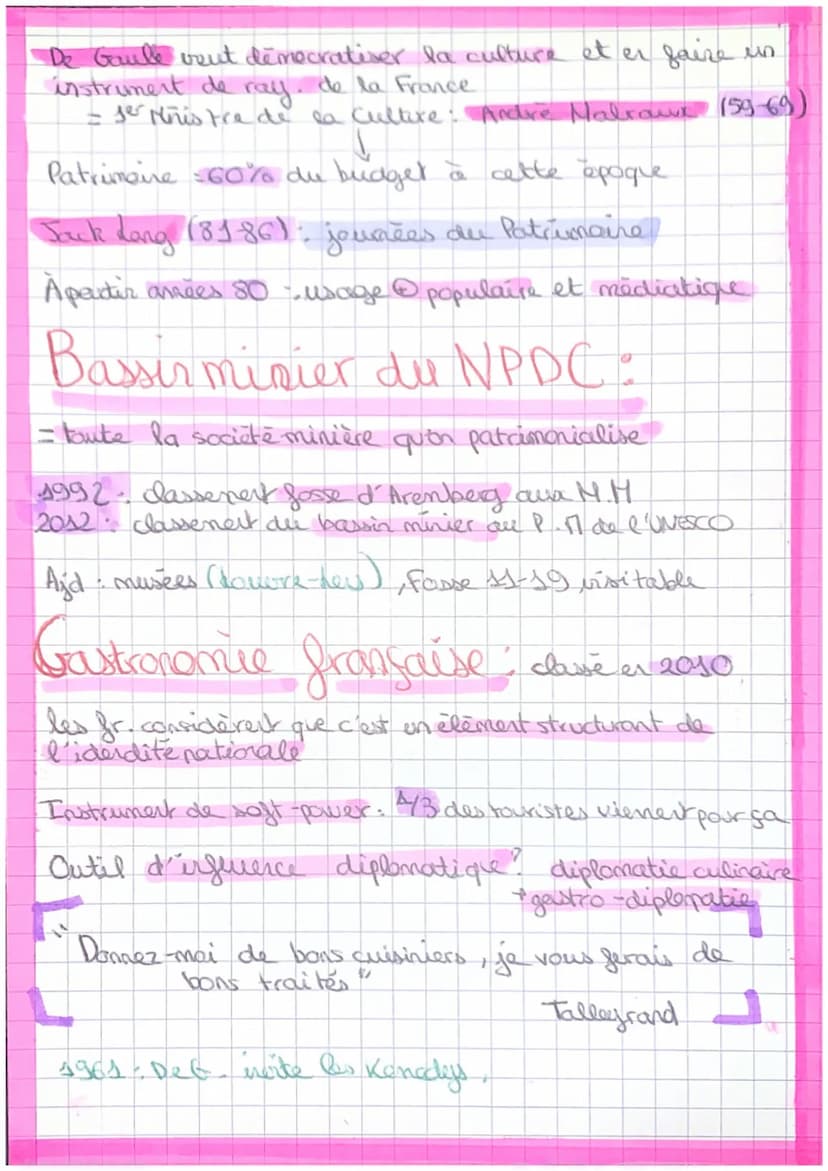 De Gaulle veut démocratiser la culture et en faire un
instrument de ray. de la France
= 1er Ministre de la Culture : André Malraux (59-69)
↓
Patrimoine = 60% du budget à cette époque
Jack Lang (81-86) : journées du Patrimoine
À partir années 80 : usage ⊕ populaire et médiatique
Bassin minier du NPDC :
= toute la société minière qu'on patrimonialise
1992 : classement fosse d'Arenberg aux M.H
2012 : classement du bassin minier au P.M de l'UNESCO
Ajd : musées (Louvre-Lens), Fosse 11-19 visitable
Gastronomie française : classé en 2010
les fr. considèrent que c'est un élément structurant de
l'identité nationale
Instrument de soft-power : 1/3 des touristes viennent pour ça
Outil d'influence diplomatique ? diplomatie culinaire
+ gastro-diplomatie
"Donnez-moi de bons cuisiniers, je vous ferais de
bons traités"
Talleyrand
1961 : De G. invite les Kenedys.